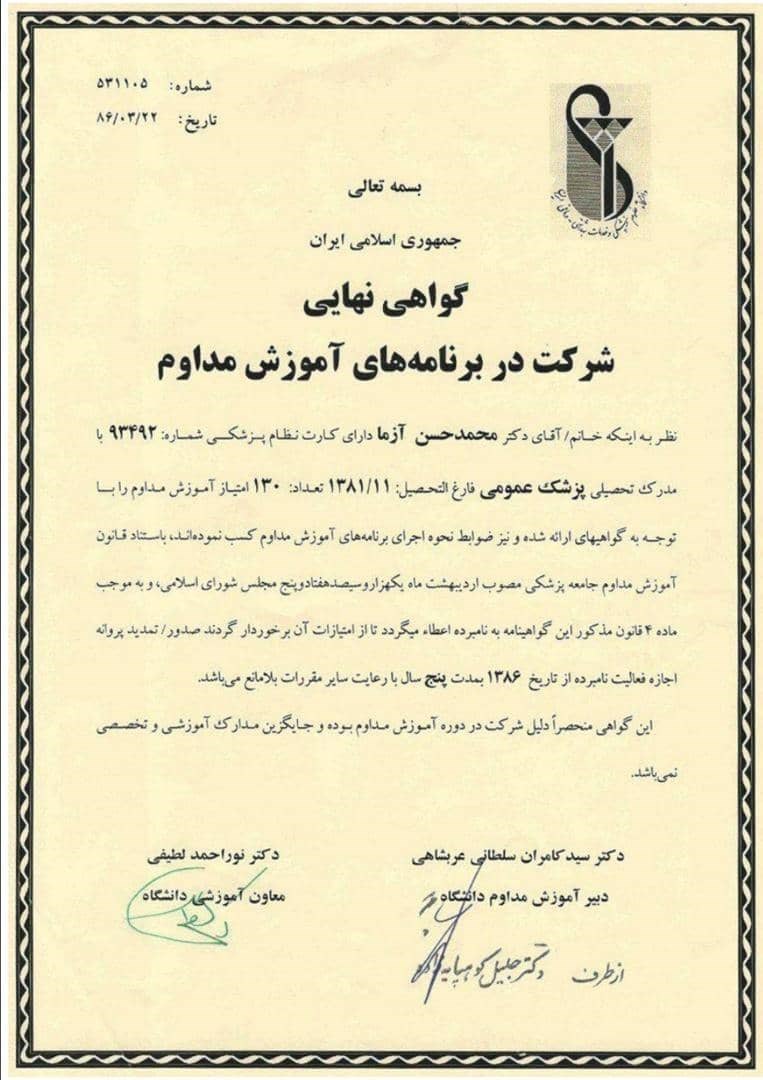 شماره: ۵۳۱۱۰۵
تاریخ: ۸۶/۰۳/۲۲
بسمه تعالی
جمهوری اسلامی ایران
گواهی نهایی
شرکت در برنامه‌های آموزش مداوم
نظر به اینکه خانم/ آقای دکتر محمدحسن آزما دارای کارت نظام پزشکی شماره: ۹۳۴۹۲ با
مدرک تحصیلی پزشک عمومی فارغ التحصیل: ۱۳۸۱/۱۱ تعداد: ۱۳۰ امتیاز آموزش مداوم را با
توجه به گواهیهای ارائه شده و نیز ضوابط نحوه اجرای برنامه‌های آموزش مداوم کسب نموده‌اند، باستناد قانون
آموزش مداوم جامعه پزشکی مصوب اردیبهشت ماه یکهزاروسیصدهفتادوپنج مجلس شورای اسلامی، و به موجب
ماده ۴ قانون مذکور این گواهینامه به نامبرده اعطاء میگردد تا از امتیازات آن برخوردار گردند صدور/ تمدید پروانه
اجازه فعالیت نامبرده از تاریخ ۱۳۸۶ بمدت پنج سال با رعایت سایر مقررات بلامانع می‌باشد.
این گواهی منحصراً دلیل شرکت در دوره آموزش مداوم بوده و جایگزین مدارک آموزشی و تخصصی
نمی‌باشد.
دکتر سیدکامران سلطانی عربشاهی
دبیر آموزش مداوم دانشگاه
از طرف دکتر جلیل کوهپایه زاده
دکتر نوراحمد لطیفی
معاون آموزشی دانشگاه